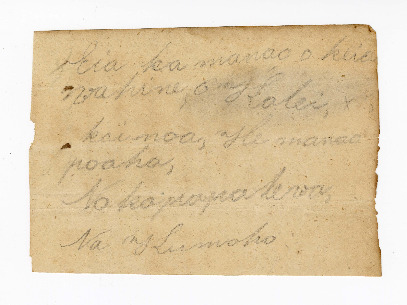 Eia ka manao o keia
wahine, o Kalei, x
kainoa, He manao
poaha,
Na kapapalewa,
Na Lumoho